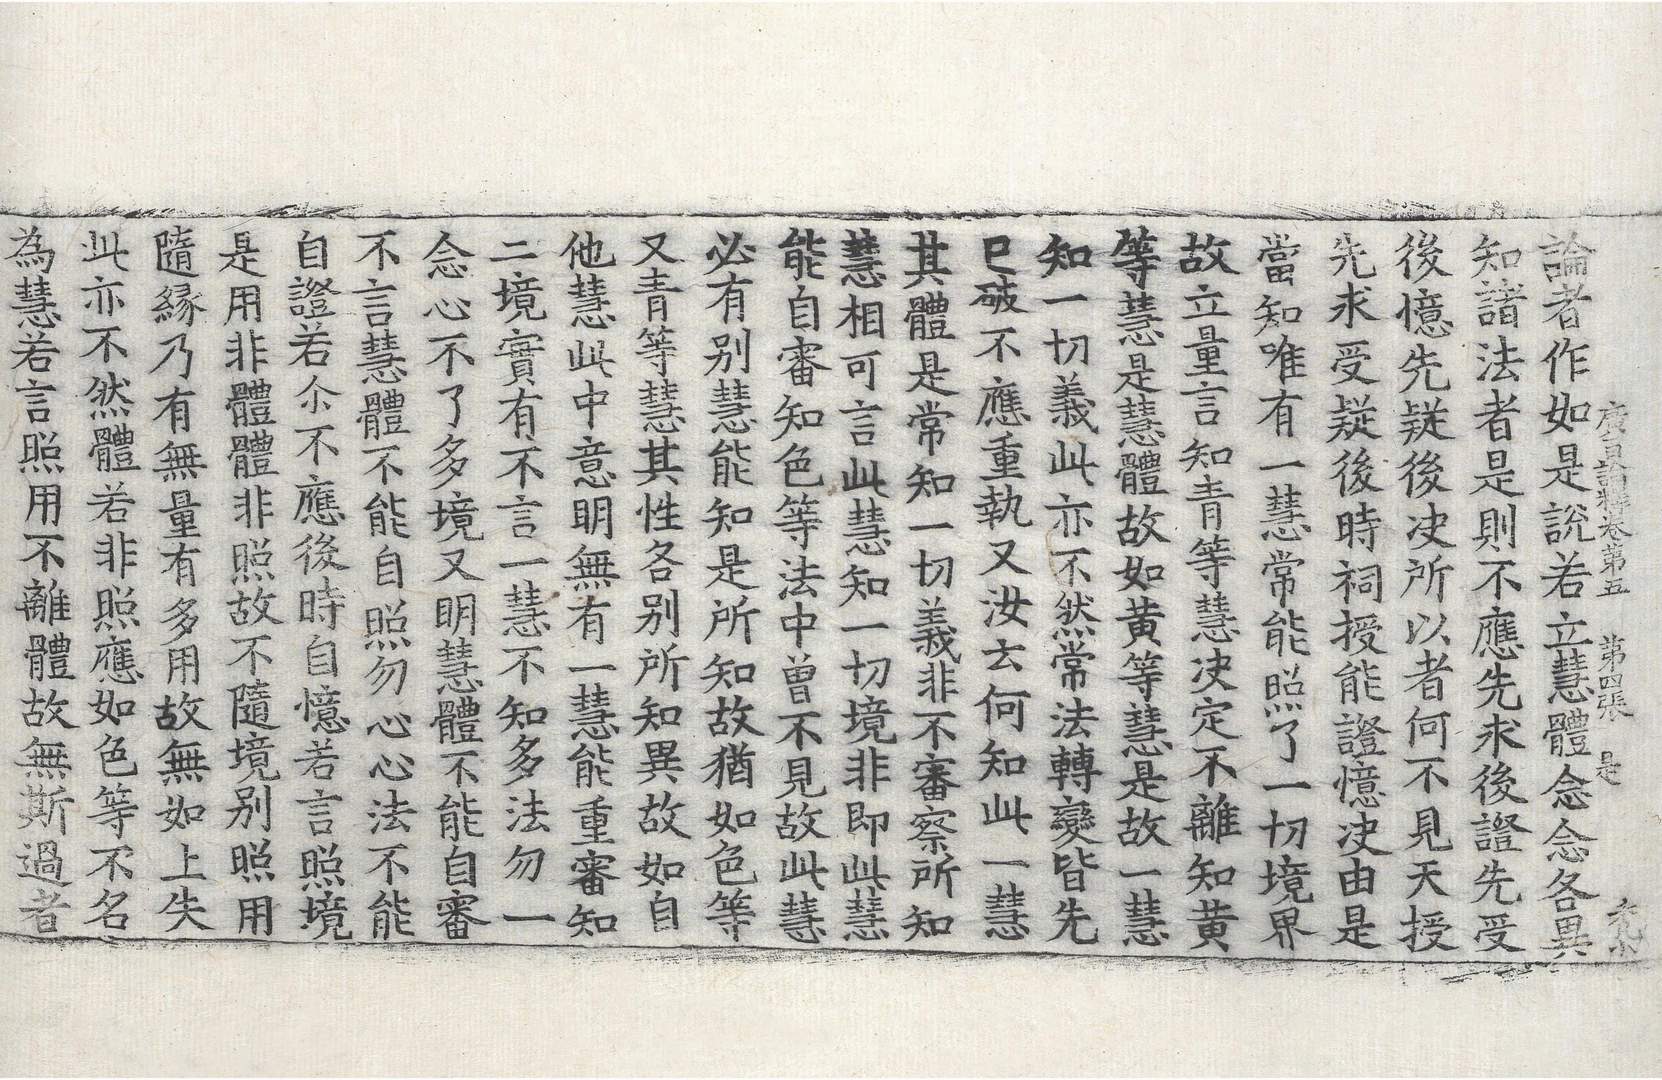 廣百論釋卷第五 第四張 是
論者作如是說若立慧體念念各異
知諸法者是則不應先求後證先受
後憶先疑後决所以者何不見天授
先求受疑後時祠授能證憶决由是
當知唯有一慧常能照了一切境界
故立量言知青等慧决定不離知黄
等慧是慧體故如黄等慧是故一慧
知一切義此亦不然常法轉變皆先
已破不應重執又汝云何知此一慧
其體是常知一切義非不審察所知
慧相可言此慧知一切境非即此慧
能自審知色等法中曾不見故此慧
必有别慧能知是所知故猶如色等
又青等慧其性各别所知異故如自
他慧此中意明無有一慧能重審知
二境實有不言一慧不知多法勿一
念心不了多境又明慧體不能自審
不言慧體不能自照勿心心法不能
自證若尒不應後時自憶若言照境
是用非體體非照故不隨境别照用
隨緣乃有無量有多用故無如上失
此亦不然體若非照應如色等不名
為慧若言照用不離體故無斯過者